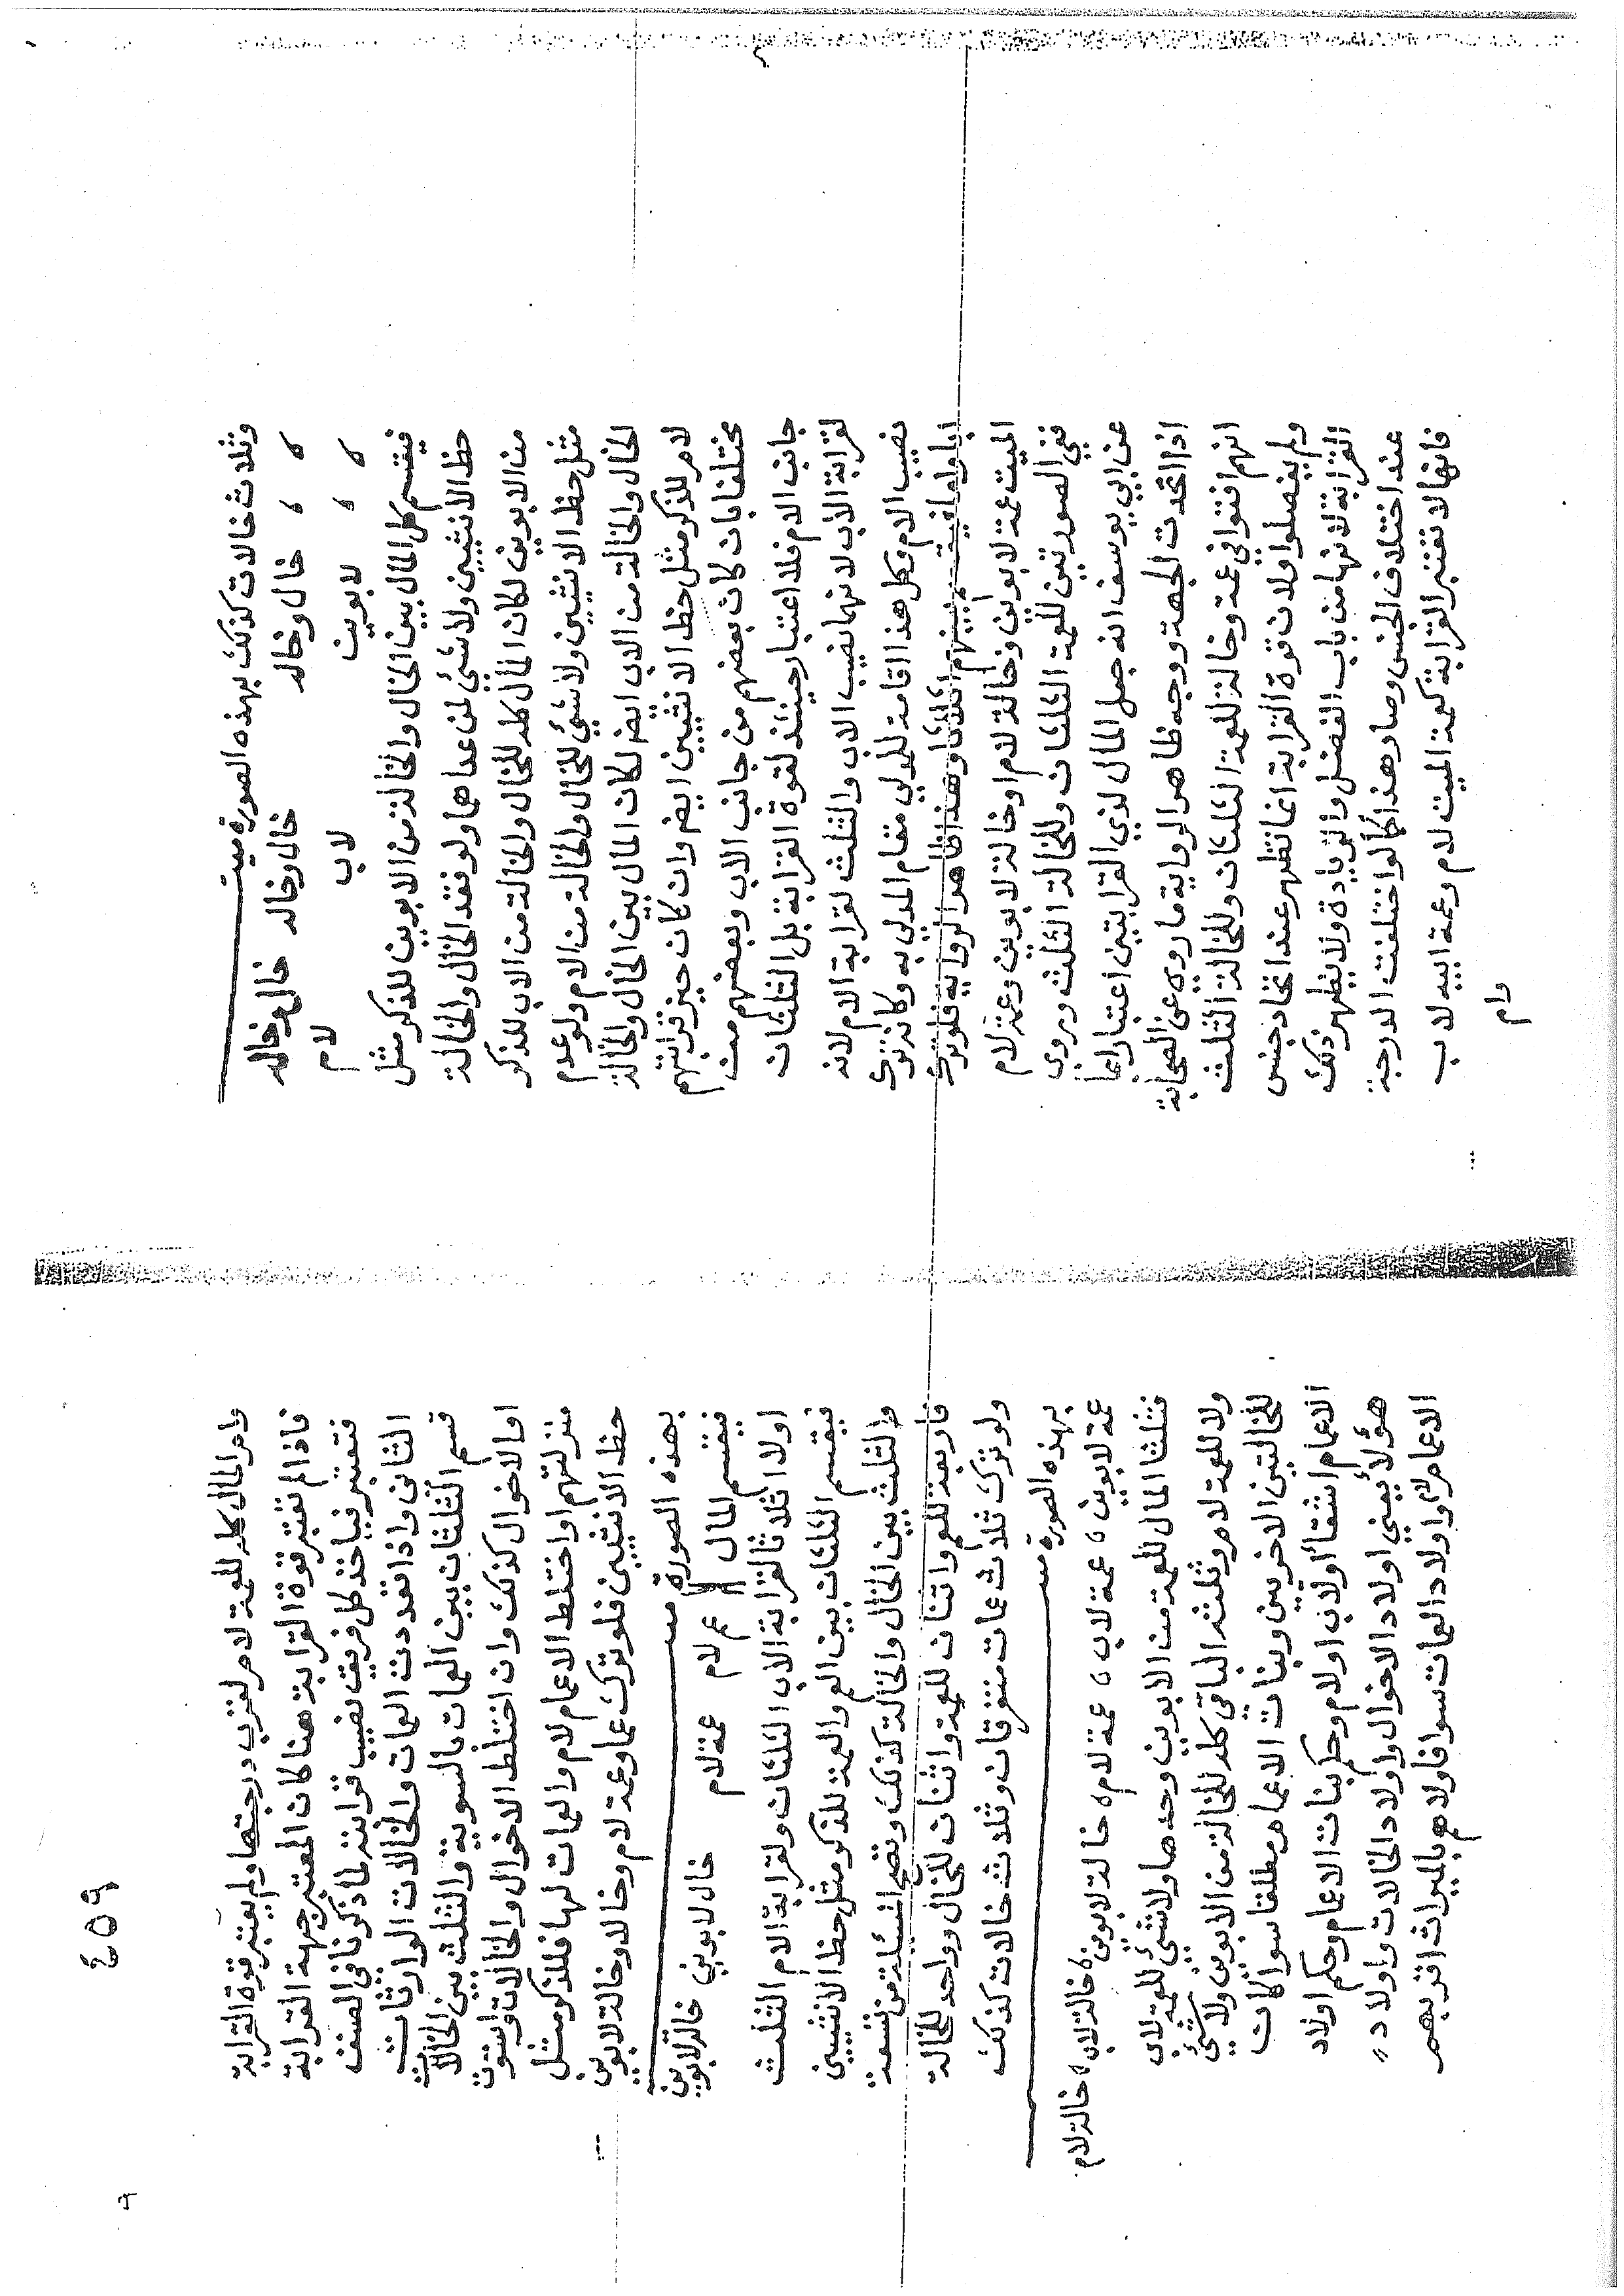 وثلاث خالات كذلك بهذه الصورة ميت
، ، خال وخاله خال وخاله خال وخاله
، ، لابوين لاب لام
فيقسم كل المال بين الخال والخالة من الابوين للذكر مثل
حظ الانثيين ولا شيئ لمن عداهما ولو فقد الخال والخالة
من الابوين لكان المال كله للخال والخالة من الاب للذكر
مثل حظ الانثيين ولا شيئ للخال والخالة من الام ولو عدم
الخال والخالة من الاب ايضا لكان المال بين الخال والخالة
لام للذكر مثل حظ الانثيين ايضا وان كان حيز قرابتهم
مختلفا بان كان بعضهم من جانب الاب وبعضهم من
جانب الام فلا اعتبار حينئذ لقوة القرابة بل الثلثان
لقرابة الاب لانهما نصيب الاب والثلث لقرابة الام لانه
نصيب الام وكل هذا اقامة للمدلي مقام المدلي به وكانه ترك
ابا واما فيقسم بينهم اثلاثا وهذا ظاهر الرواية فلو ترك
الميت عمة لابوين وخالة لام او خالة لابوين وعمة لام
ففي الصورتين للعمة الثلثان وللخالة الثلث وروي
عن ابي يوسف انه جعل المال لذي القرابتين اعتبارا بما
اذا اتحدت الجهة ووجه ظاهر الرواية ما روي عن الصحابة
انهم افتوا في عمة وخالة للعمة الثلثان وللخالة الثلث
ولم يفصلوا ولان قوة القرابة انما تظهر عند اتحاد جنس
القرابة لانها من باب الفضل والزيادة ولا يظهر ذلك
عند اختلاف الجنس وصار هذا كما لو اختلفت الدرجة
فانها لا تعتبر القرابة كعمة الميت لام وعمة ابيه لاب
وام
٤٥٩
وام المال كله للعمة لام لقرب درجتها ولم يعتبر قوة القرابة
فاذا لم تعتبر قوة القرابة هنا كان المعتبر جهة القرابة
فتعتبر فيأخذ كل فريق نصيب قرابته لما ذكرنا في الصنف
الثاني واذا تعددت العمات والخالات الوارثات
قسم الثلثان بين العمات بالسوية والثلث بين الخالات
او الاخوال كذلك وان اختلط الاخوال والخالات واستوت
منزلتهم او اختلط الاعمام لام والعمات لها فللذكر مثل
حظ الانثيين فلو ترك عما وعمة لام وخالا وخالة لابوين
بهذه الصورة مـ
عم لام عمة لام خال لابوين خالة لابوين
فيقسم المال
اولا اثلاثا لقرابة الاب الثلثان ولقرابة الام الثلث
فيقسم الثلثان بين العم والعمة للذكر مثل حظ الانثيين
والثلث بين الخال والخالة كذلك وتصح المسئلة من تسعة
فاربعة للعم واثنان للعمة واثنان للخال وواحد للخالة
ولو ترك ثلاث عمات متفرقات وثلاث خالات كذلك
بهذه الصورة مـ
عمة لابوين ، عمة لاب ، عمة لام ، خالة لابوين ، خالة لاب ، خالة لام
فثلثا المال للعمة من الابوين وحدها ولا شيئ للعمة لاب
ولا للعمة لام وثلثه الباقي كله للخالة من الابوين ولا شيئ
للخالتين الاخريين وبنات الاعمام مطلقا سوا كان
الاعمام اشقأ اولاب اولام وحكم بنات الاعمام وحكم اولاد
هؤلأ يعني اولاد الاخوال واولاد الخالات واولاد ״
الاعمام لام واولاد العمات سوا فاولاهم بالميراث اقربهم